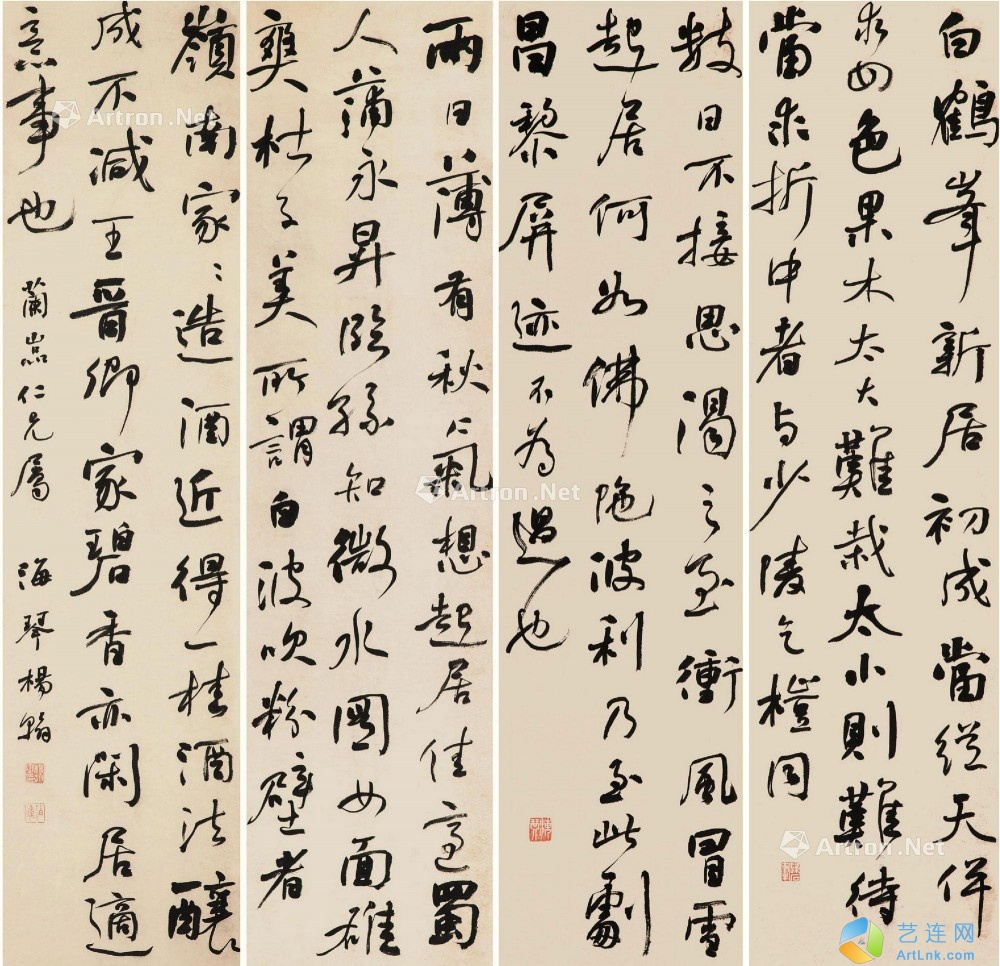 白鶴峯新居初成當從天侔
求數色果木太大難栽太小則難待
當求折中者与少陵乞榿同
數日不接思渴之至衝風冒雪
起居何如佛陁波利乃至此劇
昌黎屏迹不為過也
兩日薄有秋氣想起居佳適蜀
人蒲永昇臨孫知微水圖四面雄
爽杜子美所謂白波吹粉壁者
嶺南家〻造酒近得一桂酒法釀
成不減王晉卿家碧香亦閑居適
意事也
蘭嵓仁兄屬 海琴楊翰
Artron.Net
Artron.Net
Artron.Net
艺连网
ArtLnk.com